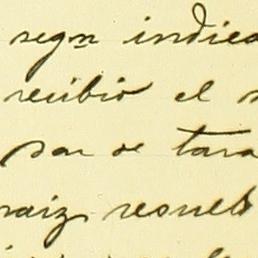 segn indica
recibio el s
par de tara
raiz resuelt